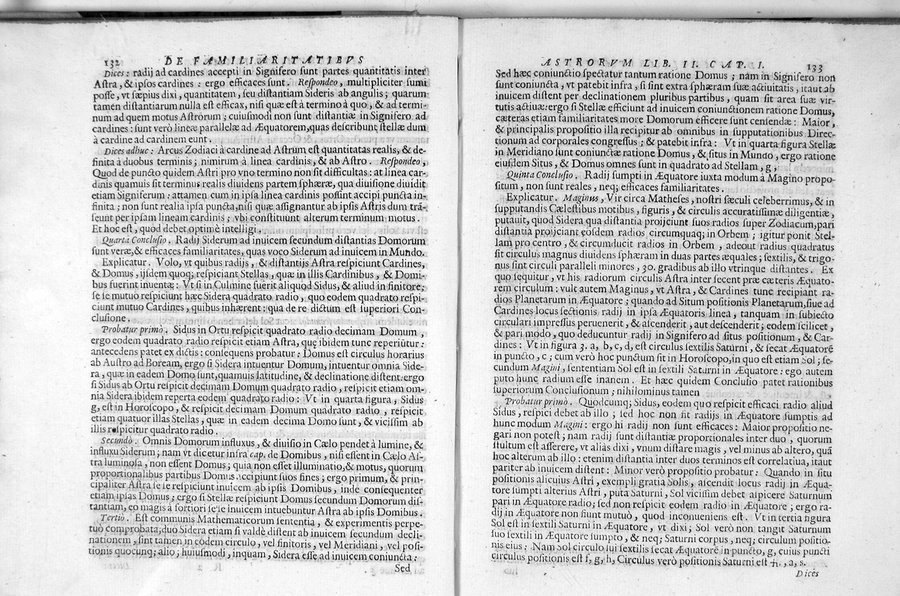 132 DE FAMILIARITATIBVS
Dices: radij ad cardines accepti in Signifero sunt partes quantitatis inter
Astra, & ipsos cardines: ergo efficaces sunt. Respondeo, multipliciter sumi
posse, vt sæpius dixi, quantitatem, seu distantiam Sideris ab angulis; quarum
tamen distantiarum nulla est efficax, nisi quæ est à termino à quo, & ad termi-
num ad quem motus Astrorum; cuiusmodi non sunt distantiæ in Signifero ad
cardines: sunt verò lineæ parallelæ ad Æquatorem, quas describunt stellæ dum
à cardine ad cardinem eunt.
Dices adhuc: Arcus Zodiaci à cardine ad Astrum est quantitas realis, & de-
finita à duobus terminis; nimirum à linea cardinis, & ab Astro. Respondeo,
Quod de puncto quidem Astri pro vno termino non sit difficultas: at linea car-
dinis quamuis sit terminus realis diuidens partem sphæræ, qua diuisione diuidit
etiam Signiferum: attamen cum in ipsa linea cardinis possint accipi puncta in-
finita; non sunt realia ipsa puncta, nisi quæ assignantur ab ipsis Astris dum trā-
seunt per ipsam lineam cardinis; vbi constituunt alterum terminum motus.
Et hoc est, quod debet optimè intelligi.
Quarta Conclusio. Radij Siderum ad inuicem secundum distantias Domorum
sunt veræ, & efficaces familiaritates, quas voco Siderum ad inuicem in Mundo.
Explicatur. Volo, vt quibus radijs, & distantijs Astra respiciunt Cardines,
& Domus, ijsdem quoq; respiciant Stellas, quæ in illis Cardinibus, & Domi-
bus fuerint inuentæ: Vt si in Culmine fuerit aliquod Sidus, & aliud in finitore;
se se mutuo respiciunt hæc Sidera quadrato radio, quo eodem quadrato respi-
ciunt mutuo Cardines, quibus inhærent: qua de re dictum est superiori Con-
clusione.
Probatur primò. Sidus in Ortu respicit quadrato radio decimam Domum,
ergo eodem quadrato radio respicit etiam Astra, quę ibidem tunc reperiūtur:
antecedens patet ex dictis: consequens probatur: Domus est circulus horarius
ab Austro ad Boream, ergo si Sidera intuentur Domum, intuentur omnia Side-
ra, quæ in eadem Domo sunt, quamuis latitudine, & declinatione distent: ergo
si Sidus ab Ortu respicit decimam Domum quadrato radio, respicit etiam om-
nia Sidera ibidem reperta eodem quadrato radio: Vt in quarta figura, Sidus
g, est in Horoscopo, & respicit decimam Domum quadrato radio, respicit
etiam quatuor illas Stellas, quæ in eadem decima Domo sunt, & vicissim ab
illis respicitur quadrato radio.
Secundò. Omnis Domorum influxus, & diuisio in Cælo pendet à lumine, &
influxu Siderum; nam vt dicetur infra cap. de Domibus, nisi essent in Cælo As-
tra luminosa, non essent Domus; quia non esset illuminatio, & motus, quorum
proportionalibus partibus Domus accipiunt suos fines; ergo primum, & prin-
cipaliter Astra se se respiciunt inuicem ab ipsis Domibus, inde consequenter
etiam ipsas Domus; ergo si Stellæ respiciunt Domus secundum Domorum dis-
tantiam, eo magis à fortiori se se inuicem intuebuntur Astra ab ipsis Domibus.
Tertiò. Est communis Mathematicorum sententia, & experimentis perpe-
tuò comprobata; duo Sidera etiam si valdè distent ab inuicem secundum decli-
nationem, sint tamen in eodem circulo, vel finitoris, vel Meridiani, vel posi-
tionis quocunq; alio; huiusmodi, inquam, Sidera esse ad inuicem coniuncta:
Sed
ASTRORVM LIB. II. CAP. I. 133
Sed hæc coniunctio spectatur tantum ratione Domus; nam in Signifero non
sunt coniuncta, vt patebit infra, si sint extra sphæram suæ actiuitatis, itaut ab
inuicem distent per declinationem pluribus partibus, quam sit area suæ vir-
tutis actiuæ: ergo si Stellæ efficiunt ad inuicem coniunctionem ratione Domus,
cæteras etiam familiaritates more Domorum efficere sunt censendæ: Maior,
& principalis propositio illa recipitur ab omnibus in supputationibus Direc-
tionum ad corporales congressus; & patebit infra: Vt in quarta figura Stellæ
in Meridiano sunt coniunctæ ratione Domus, & situs in Mundo, ergo ratione
eiusdem Situs, & Domus omnes sunt in quadrato ad Stellam, g,
Quinta Conclusio. Radij sumpti in Æquatore iuxta modum à Magino propo-
situm, non sunt reales, neq; efficaces familiaritates.
Explicatur. Maginus, Vir circa Matheses, nostri sæculi celeberrimus, & in
supputandis Cælestibus motibus, figuris, & circulis accuratissimæ diligentiæ,
putauit, quod Sidera qua distantia proijciunt suos radios super Zodiacum, pari
distantia proijciant eosdem radios circumquaq; in Orbem; igitur ponit Stel-
lam pro centro, & circumducit radios in Orbem, adeout radius quadratus
sit circulus magnus diuidens sphæram in duas partes æquales; sextilis, & trigo-
nus sint circuli paralleli minores, 30. gradibus ab illo vtrinque distantes. Ex
quo sequitur, vt his radiorum circulis Astra intersecent præ cæteris Æquato-
rem circulum: vult autem Maginus, vt Astra, & Cardines tunc recipiant ra-
dios Planetarum in Æquatore; quando ad Situm positionis Planetarum, siue ad
Cardines locus sectionis radij in ipsa Æquatoris linea, tanquam in subiecto
circulari impressus peruenerit, & ascenderit, aut descenderit; eodem scilicet,
& pari modo, quo deducuntur radij in Signifero ad situs positionum, & Car-
dines: Vt in figura 3. a, b, c, d, est circulus sextilis Saturni, & secat Æquatorē
in puncto, c; cum verò hoc punctum sit in Horoscopo, in quo est etiam Sol; se-
cundum Magini, sententiam Sol est in sextili Saturni in Æquatore: ego autem
puto hunc radium esse inanem. Et hæc quidem Conclusio patet rationibus
superiorum Conclusionum; nihilominus tamen
Probatur primò. Quodcumq; Sidus, eodem quo respicit efficaci radio aliud
Sidus, respici debet ab illo; sed hoc non fit radijs in Æquatore sumptis ad
hunc modum Magini: ergo hi radij non sunt efficaces: Maior propositio ne-
gari non potest; nam radij sunt distantiæ proportionales inter duo, quorum
stultum est asserere, vt alias dixi, vnum distare magis, vel minus ab altero, quā
hoc alterum ab illo: etenim distantia inter duos terminos est correlatiua, itaut
pariter ab inuicem distent: Minor verò propositio probatur: Quando in situ
positionis alicuius Astri, exempli gratia Solis, ascendit locus radij in Æqua-
tore sumpti alterius Astri, puta Saturni, Sol vicissim debet aipicere Saturnum
pari in Æquatore radio; sed non respicit eodem radio in Æquatore; ergo ra-
dij in Æquatore non fiunt mutuò, quod inconueniens est. Vt in tertia figura
Sol est in sextili Saturni in Æquatore, vt dixi; Sol verò non tangit Saturnum
suo sextili in Æquatore sumpto, & neq; Saturni corpus, neq; circulum positio-
nis eius: Nam Sol circulo sui sextilis secat Æquatorē in puncto, g, cuius puncti
circulus positionis est f, g, h, Circulus verò positionis Saturni est ♄, a, s.
Dices